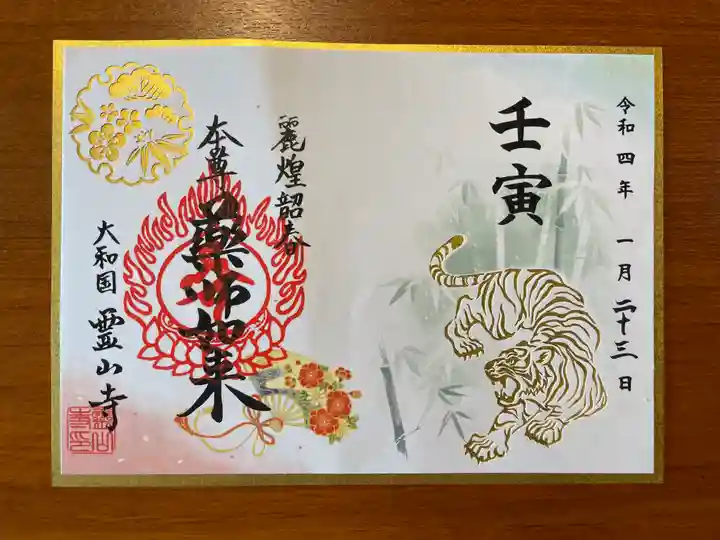 令和四年 一月二十三日
壬寅
麗煌韶春
本尊 薬師如来
大和国 霊山寺